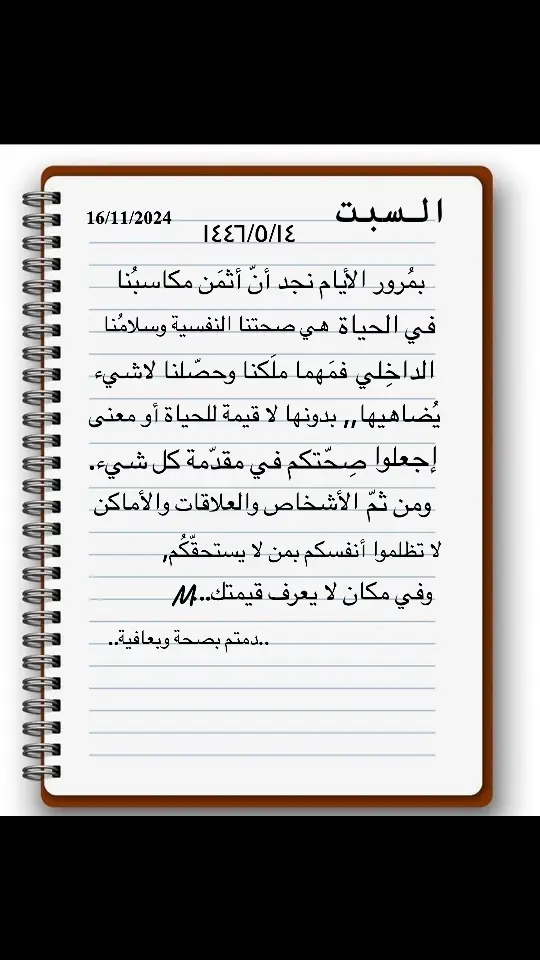 السبت
16/11/2024
١٤٤٦/٥/١٤
بمُرور الأيام نجد أنّ أثمَن مكاسبُنا
في الحياة هي صحتنا النفسية وسلامُنا
الداخِلي فمَهما ملَكنا وحصّلنا لاشيء
يُضاهيها,, بدونها لا قيمة للحياة أو معنى
إجعلوا صِحّتكم في مقدّمة كل شيء.
ومن ثمّ الأشخاص والعلاقات والأماكن
لا تظلموا أنفسكم بمن لا يستحقّكُم,
وفي مكان لا يعرف قيمتك..M
..دمتم بصحة وبعافية..